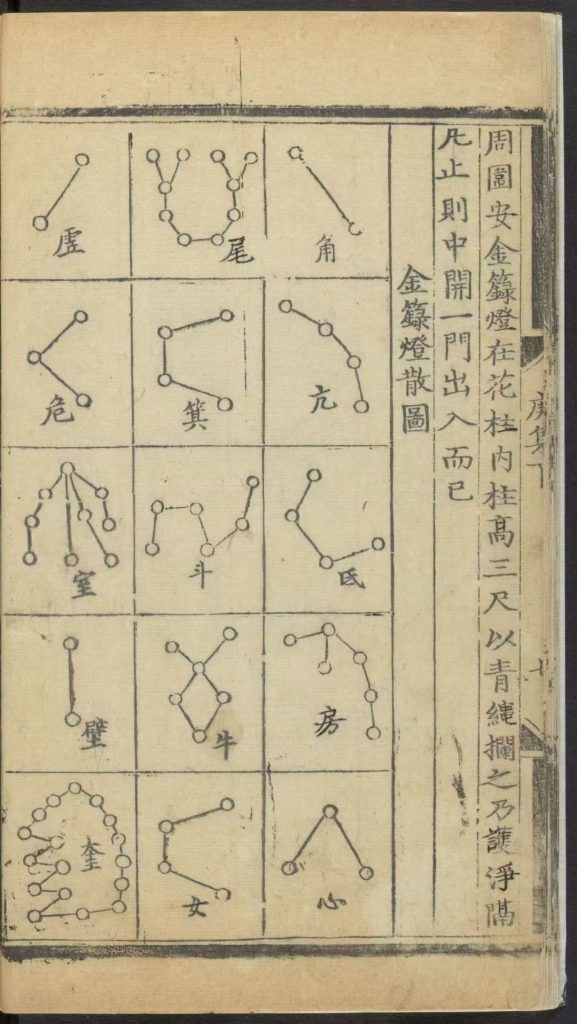 庚集下
周圍安金籙燈在花柱内柱高三尺以青繩攔之乃護淨隔
凡止則中開一門出入而已
金籙燈散圖
角
亢
氐
房
心
尾
箕
斗
牛
女
虛
危
室
壁
奎